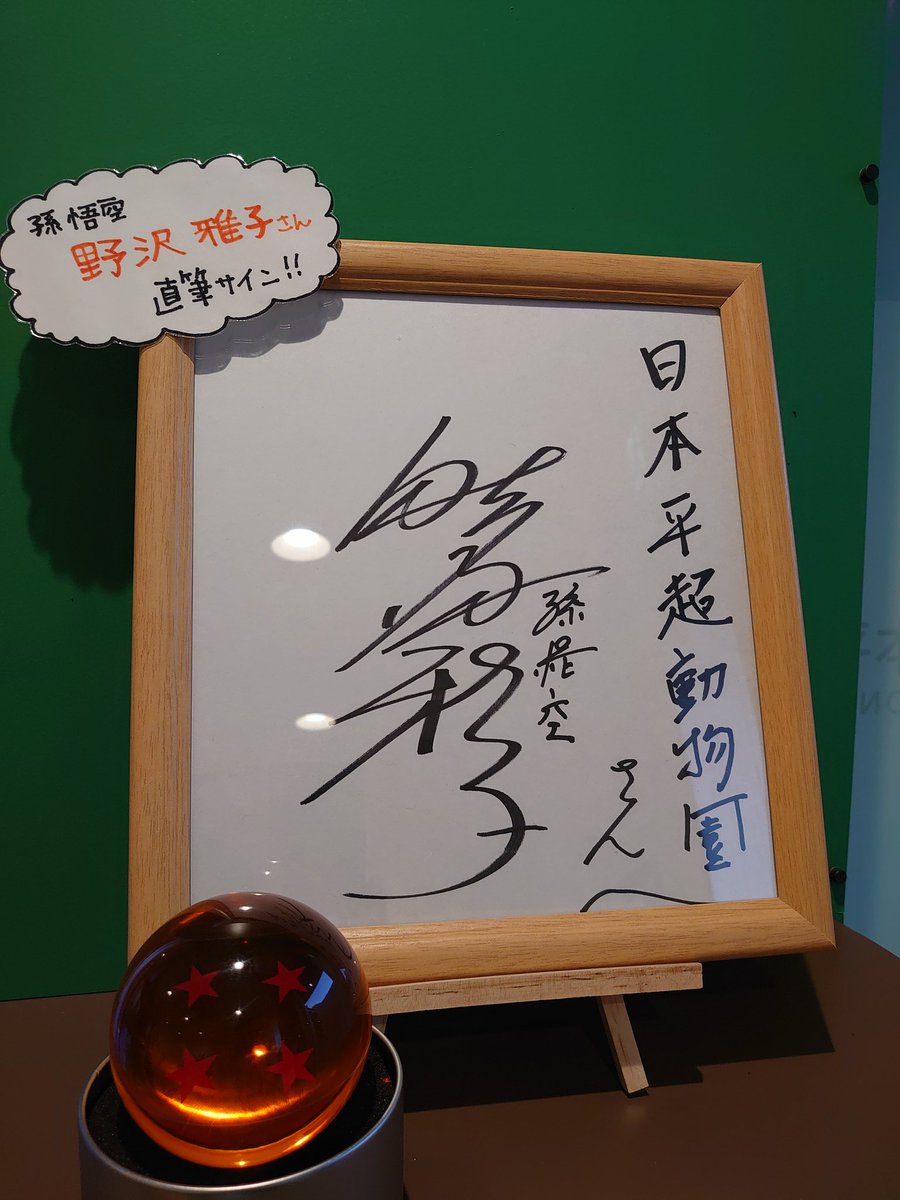 孫悟空
野沢雅子さん
直筆サイン!!
日本平超動物園
さんへ
孫悟空
野沢雅子